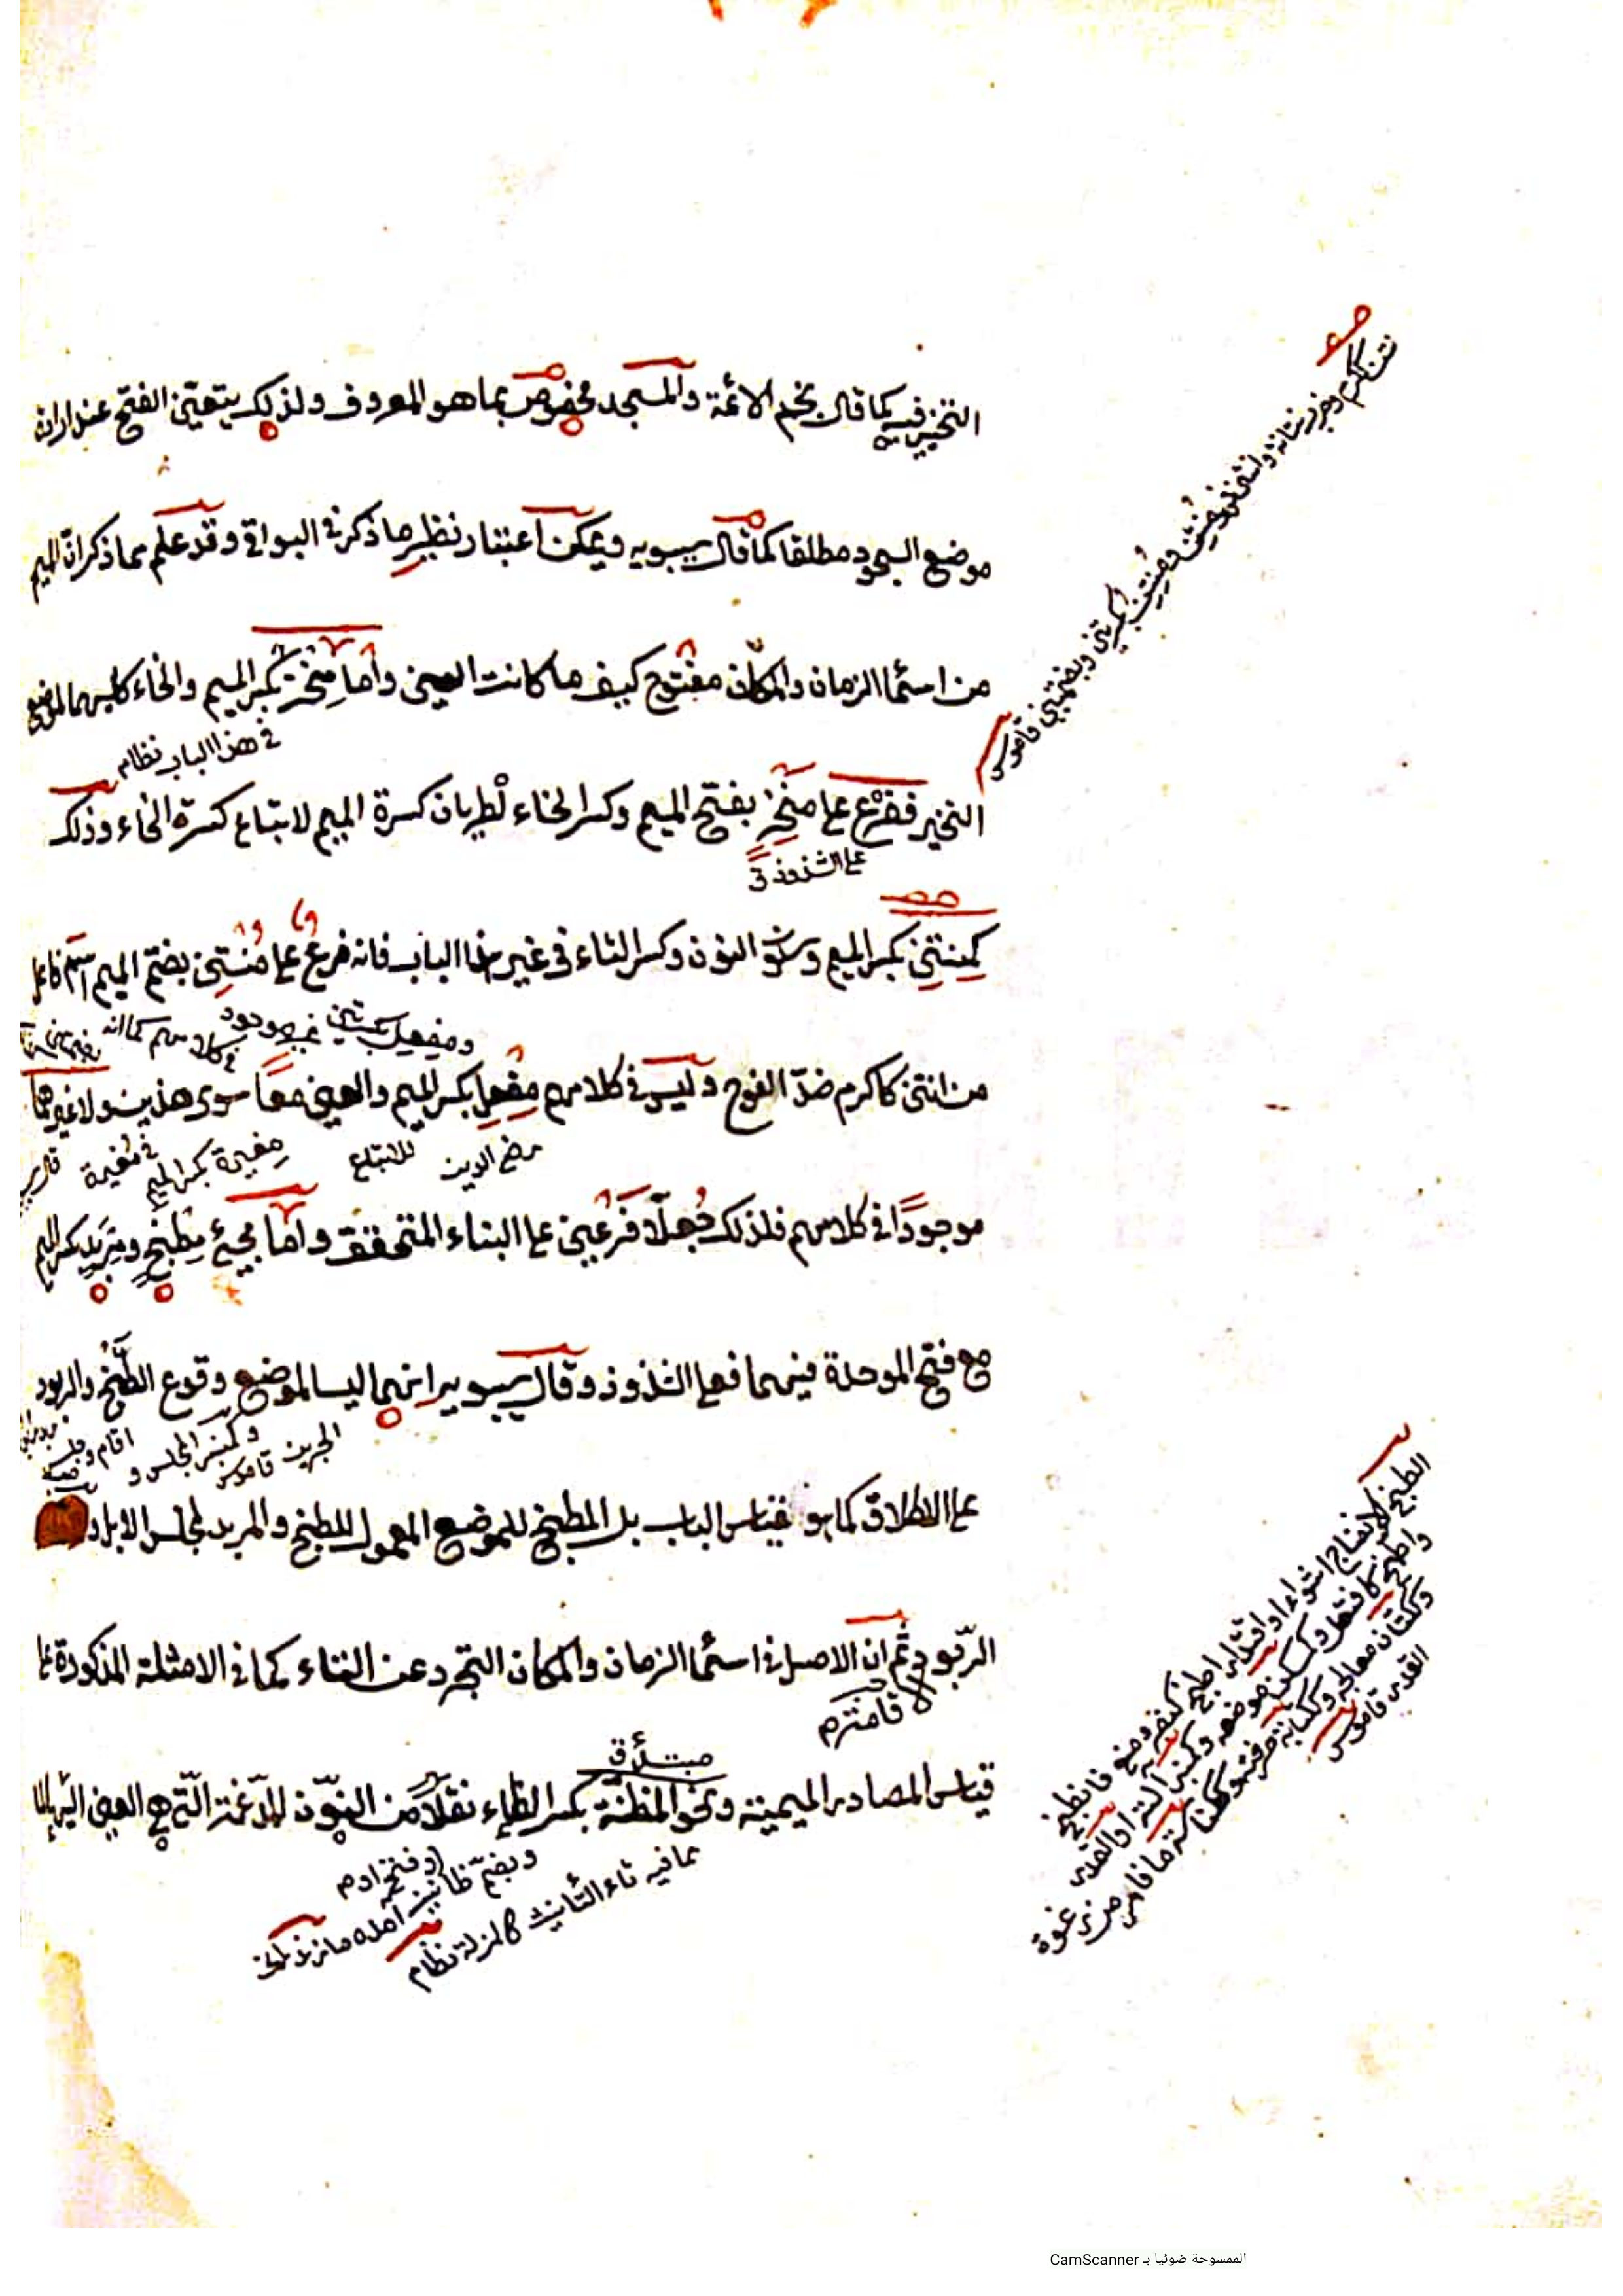 التخيير فيه كما قال نجم الائمة والمسجد مخصوص بما هو المعروف ولذلك يتعين الفتح عند ارادة
موضع السجود مطلقا كما قال سيبويه ويمكن اعتبار نظير ما ذكر في البواقي وقد علم مما ذكر ان الميم
من اسماء الزمان والمكان مفتوح كيف ما كانت العين واما مِنْخِر بكسر الميم والخاء كليهما لموضع
في هذا الباب نظام
النخير ففرع على منخِر بفتح الميم وكسر الخاء لطريان كسرة الميم لاتباع كسرة الخاء وذلك
على الشذوذ
كمِنتِن بكسر الميم وسكون النون وكسر التاء في غير هذا الباب فانه فرع على مُنْتِن بضم الميم اسم فاعل
ومفعل بكسرتين غير موجود في كلامهم كما انه
من انتن كاكرم ضد الفوح وليس في كلامهم مِفْعِل بكسر الميم والعين معا سوى هذين ولا غيرهما
رضي الدين للاتباع مِغيرة بكسر الميم في مُغيرة
موجودًا في كلامهم فلذلك جُعلا فرعين على البناء المتحقق واما مجيئ مِطْبَخ ومِرْبَد بكسر الميم
مع فتح الموحدة فيهما فعلى الشذوذ وقال سيبويه انهما ليسا لموضع وقوع الطبخ والربود
وكمنبر المجلس و الجرين قاموس
على الاطلاق كما هو قياس الباب بل المطبخ للموضع المعمول للطبخ والمربد لمجلس الابل و
الربود ثم ان الاصل في اسماء الزمان والمكان التجرد عن التاء كما في الامثلة المذكورة على
قياس المصادر الميمية ونحو المظنة بكسر الظاء نقلا من النون المدغمة التي هي العين اليها
مبتدأ
مما فيه تاء التأنيث كالمزلة نظام
نتن ككرم وضرب نتانة وانتن فهو مُنْتِن ومِنْتِن بكسرتين وبضمتين قاموس
الطبخ الانضاج اشتواء او اقتدارا طبخ كنصر ومنع فانطبخ
واطبخ كافتعل وكمسكن موضعه وكمنبر آلته او القدر
القدر قاموس